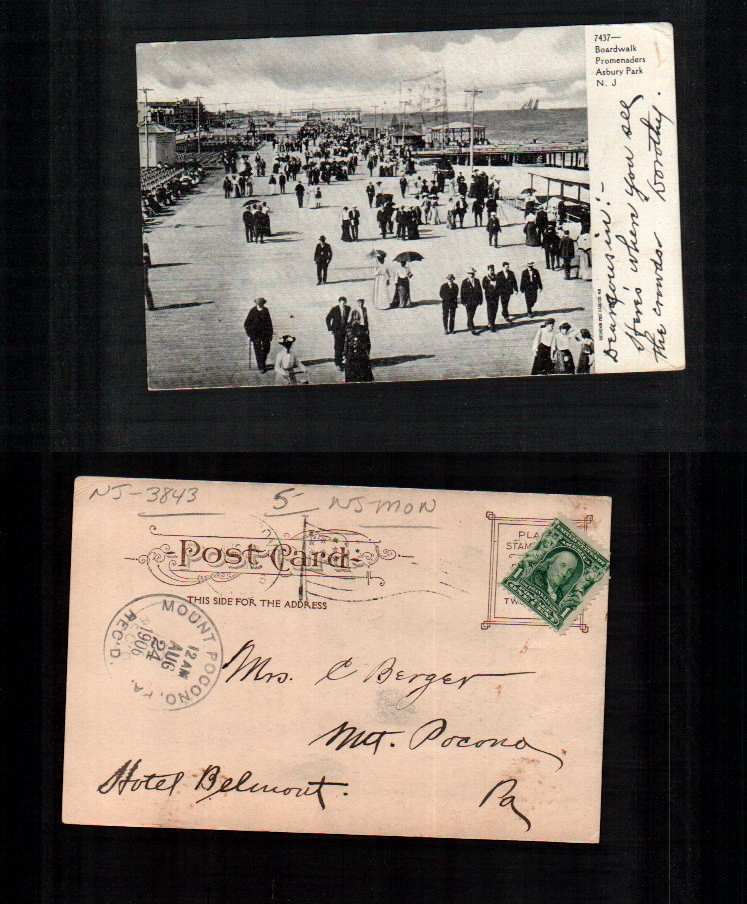 7437—
Boardwalk
Promenaders
Asbury Park
N. J
Dear Cousin:-
Here's where you see
the crowds. Dorothy.
NJ-3843
5-
NJ-MON
Post Card
THIS SIDE FOR THE ADDRESS
MOUNT POCONO, PA.
12 AM
AUG
24
1906
REC'D.
Mrs. C Berger
Mt. Pocono
Hotel Belmont.
Pa